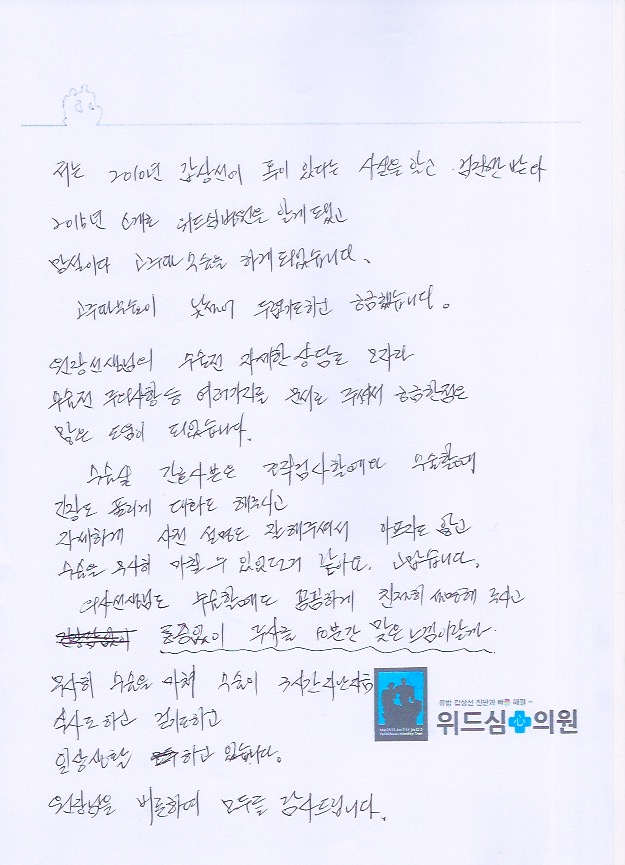 저는 2010년 갑상선이 혹이 있다는 사실을 알고 검진만 받다
2015년 6개로 위드심병원을 알게 되었고
망설이다 고주파수술을 하게 되었습니다.
고주파수술이 낯설어 두렵기도하고 궁금했습니다.
원장선생님의 수술전 자세한 상담도 모자라
수술전 주의사항 등 여러가지를 문서로 주셔서 궁금한점은
많은 도움이 되었습니다.
수술실 간호사분은 조직검사할때나 수술할때
긴장도 풀리게 대화도 해주시고
자세하게 사전 설명도 잘해주셔서 아프지도 않고
수술을 무사히 마칠 수 있었던거 같아요. 고맙습니다.
의사선생님도 수술할때도 꼼꼼하게 친절히 설명해 주시고
통증없이 주사를 10분간 맞은 느낌이랄까
무사히 수술을 마쳐 수술이 3시간 지난 지금
식사도 하고 걷기도하고
일상생활 하고 있습니다.
원장님을 비롯하여 모두들 감사드립니다.
유방 갑상선 진단과 빠른 해결
위드심의원